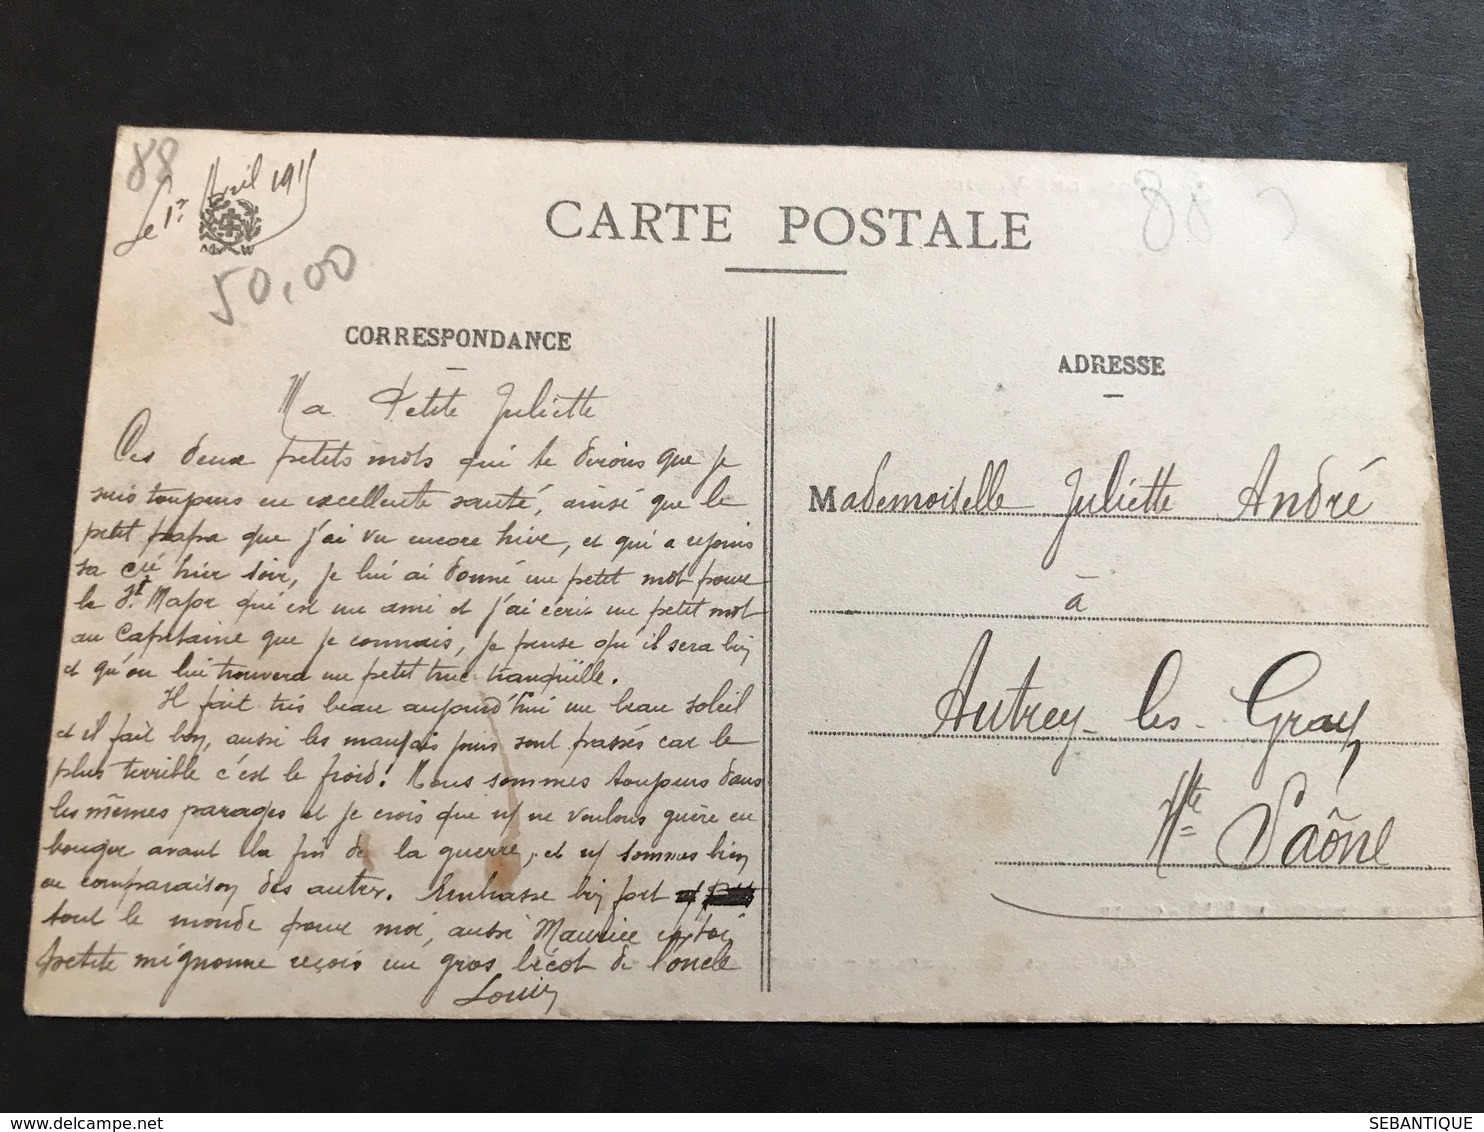 88
Le 1er Avril 1915
50,00
CARTE POSTALE
88
CORRESPONDANCE
Ma Petite Juliette
Ces deux petits mots qui te dirons que je
suis toujours en excellente santé, ainsi que le
petit papa que j'ai vu encore hier, et qui a rejoins
sa Cie hier soir, je lui ai donné un petit mot pour
le Major qui est un ami et j'ai écris un petit mot
au Capitaine que je connais, je pense qu'il sera bien
et qu'on lui trouvera un petit truc tranquille.
Il fait très beau aujourd'hui un beau soleil
et il fait bon, aussi les mauvais jours sont passés car le
plus terrible c'est le froid! Nous sommes toujours dans
les mêmes parages et je crois que n/ ne voulons guère en
bouger avant la fin de la guerre, et n/ sommes bien
en comparaison des autres. Embrasse bien fort
tout le monde pour moi, aussi Maurice et toi
petite mignonne reçois un gros bécot de l'oncle
Louis
ADRESSE
Mademoiselle Juliette André
à
Autrey-les-Gray
Hte Saône
SEBANTIQUE